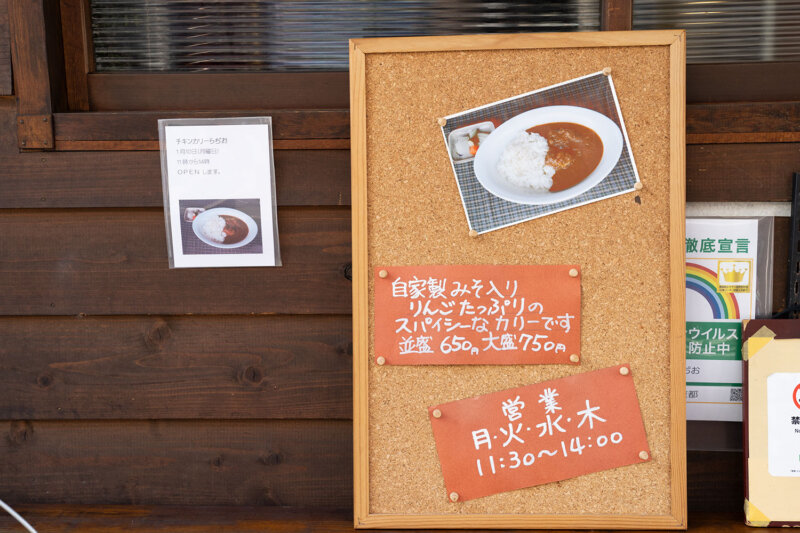 チキンカリーらぢお
1月10日(月曜日)
11時から14時
OPENします。
自家製みそ入り
りんごたっぷりの
スパイシーなカリーです
並盛 650円 大盛750円
営業
月・火・水・木
11:30～14:00
徹底宣言
ウイルス
防止中
ぢお
京都
禁
No